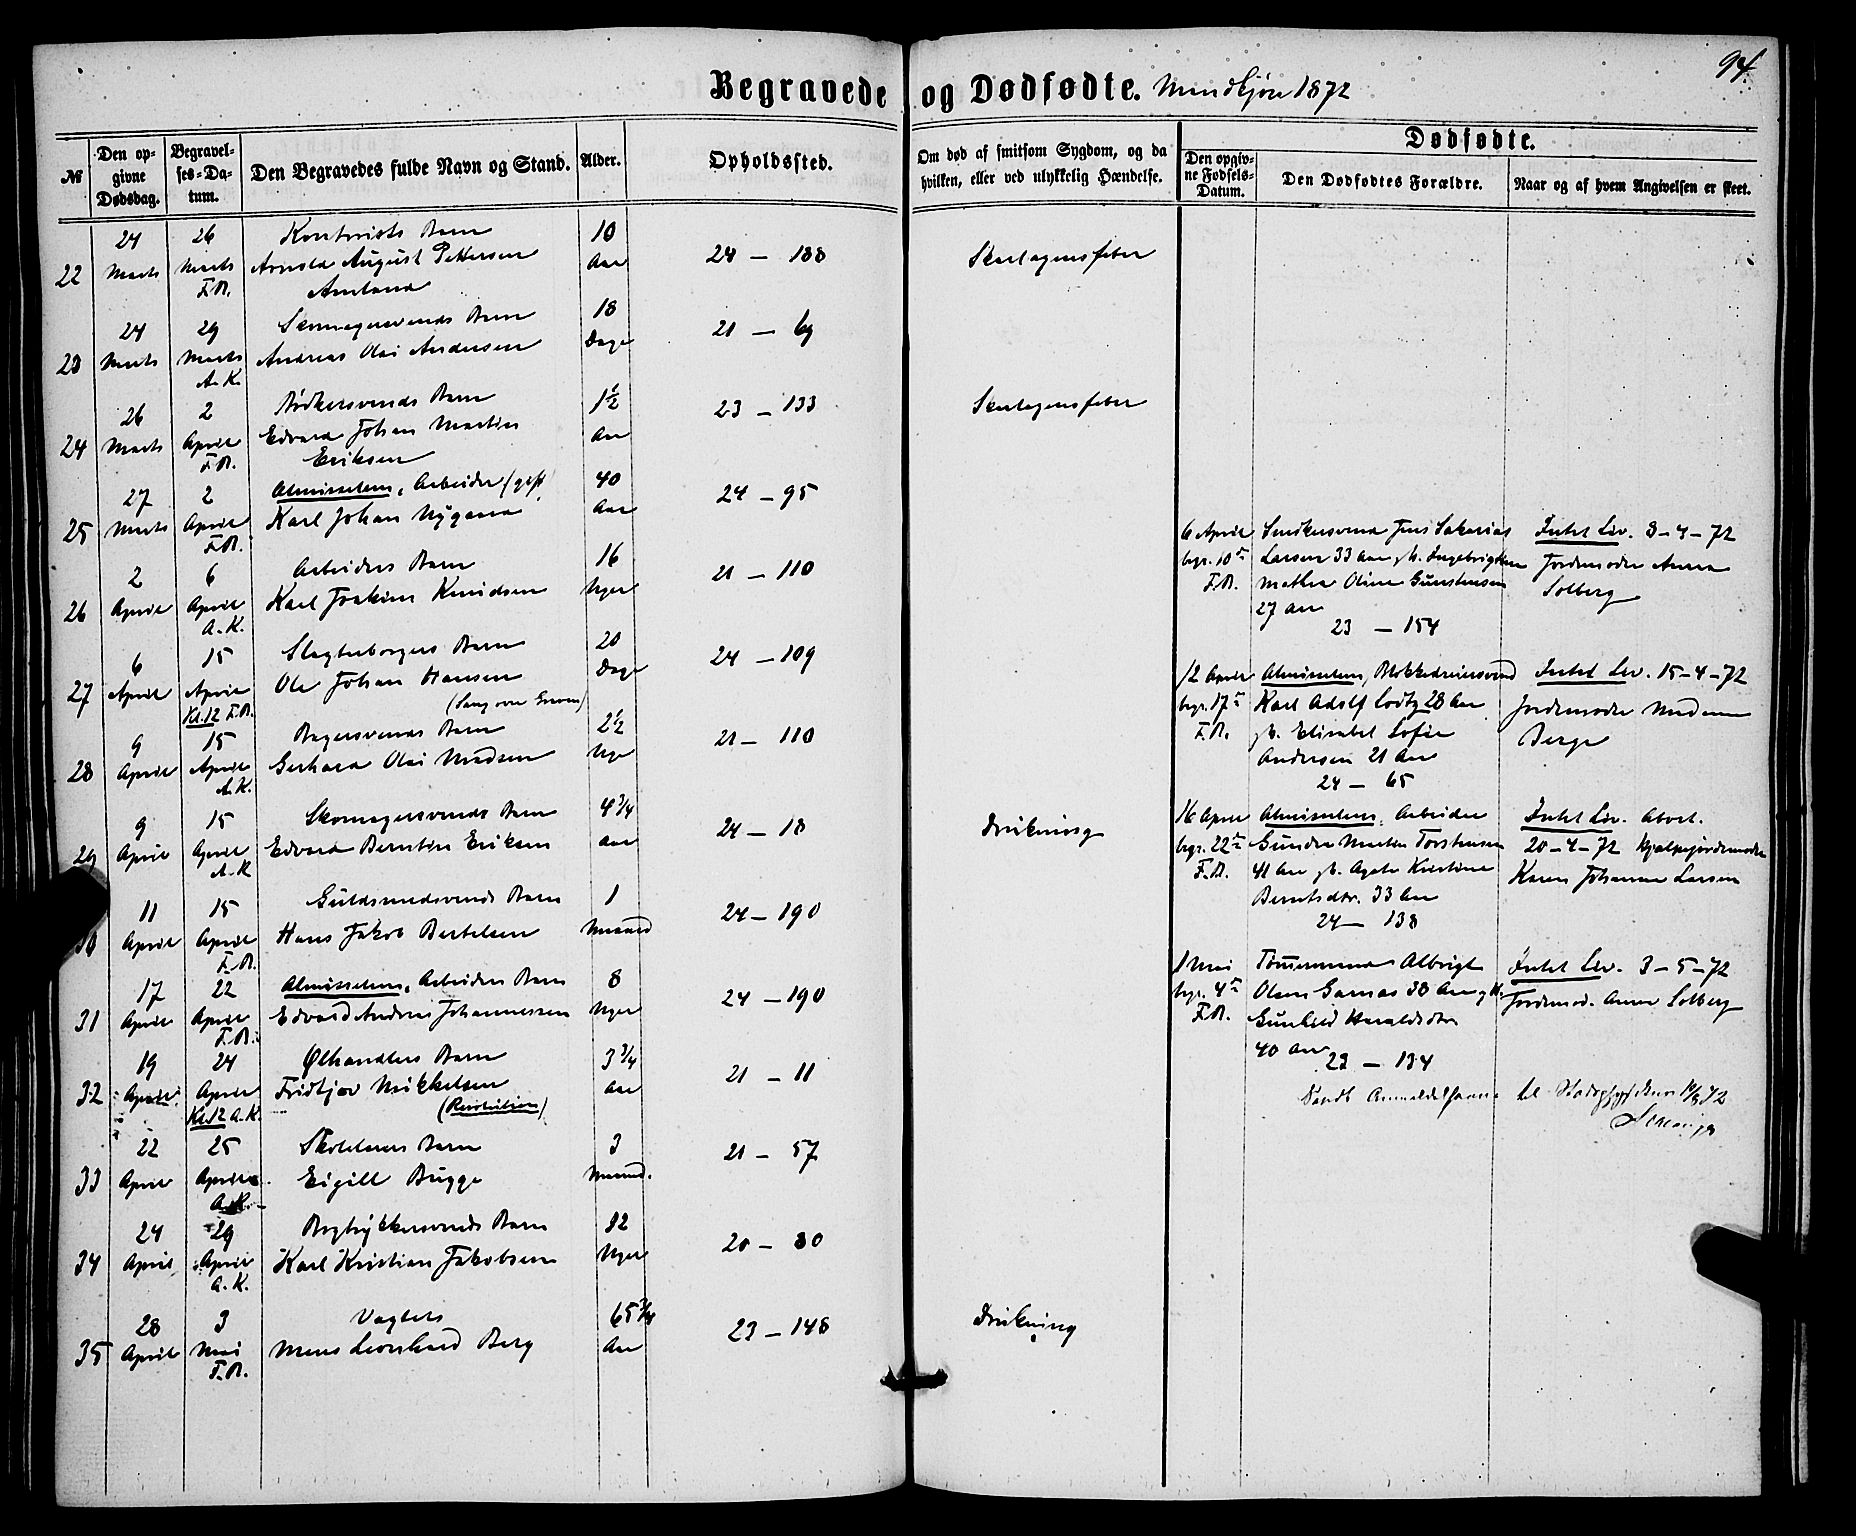 94.
Begravede og Dødfødte. Mandkjøn 1872
№
Den opgivne Dødsdag.
Begravelses-Datum.
Den Begravedes fulde Navn og Stand.
Alder.
Opholdssted.
Om død af smitsom Sygdom, og da hvilken, eller ved ulykkelig Hændelse.
Dødfødte.
Den opgivne Fødsels-Datum.
Den Dødfødtes Forældre.
Naar og af hvem Angivelsen er skeet.
24 26 Kontorists Barn 10
22 Marts Marts August Pettersen Aar 24 – 188 Skarlagensfeber
F.B. Amland
24 29 Skomagersvends Barn 18
23 Marts Marts Andreas Olai Andersen Dage 21 – 69
A.K.
26 2 Bødkersvends Barn 1½
24 Marts April Edvard Johan Martin Aar 23 – 133 Skarlagensfeber
F.B. Eriksen
27 2 Almisselem, Arbeider (gift) 40
25 Marts April Karl Johan Nygaard Aar 24 – 95
F.B.
2 6 Arbeiders Barn 16
26 April April Karl Joakim Knudsen Uger 21 – 110
A.K.
6 15 Slagterborgers Barn 20
27 April April Ole Johan Hansen Dage 24 – 109
Kl. 12 F.B. (Sang over Graven)
9 15 Bagersvends Barn 2½
28 April April Gerhard Olai Madsen Uge 21 – 110
A.K.
9 15 Skomagersvends Barn 4¾
29 April April Edvard Berntin Eriksen Aar 24 – 18 Drukning
A.K.
11 15 Guldsmedsvends Barn 1
30 April April Hans Jakob Bertelsen Maaned 24 – 190
F.B.
17 22 Almisselem, Arbeiders Barn 8
31 April April Edvard Andreas Johannessen Uger 24 – 190
F.B.
19 24 Ølhandlers Barn 3¾
32 April April Fridtjov Mikkelsen Aar 21 – 11
Kl. 12 A.K. (Resolution)
22 25 Barn 3
33 April April Eigill Bugge Maaned. 21 – 57
A.K.
24 29 Bogtrykkersvends Barn 12
34 April April Karl Kristian Jakobsen Uger 20 – 80
A.K.
28 3 Vægter 65¾
35 April Mai Mons Leonhard Berg Aar 23 – 148 Drukning
F.B.
6 April Smedkersvend Jens Sakarias Intet Liv. 8–4–72
begr. 10de Larsen 33 Aar gh. Ingebrigtine Jordemoder Anna
F.B. Mathea Oline Gunstensen Solberg
27 Aar
23 – 154
12 April Almisselem, Blokkedreiersvend Intet Liv. 15–4–72
begr. 17de Karl Adolf Lodtz 28 Aar Jordemoder Madam
F.B. gh. Elisabet Sofie Berge
Andersen 21 Aar
24 – 65
16 April Almisselem, Arbeider Intet Liv. Abort.
begr. 22de Gunder Martin Torstensen 20–4–72 Hjælpejordemoder
F.B. 41 Aar gh. Agate Kristine Karen Johanne Larsen
Berntsdtr. 33 Aar
24 – 138
1 Mai Tømmermand Albrigt Intet Liv. 3–5–72
begr. 4de Olsen Garnas 38 Aar gh. Jordemod. Anna Solberg
F.B. Gunhild Haraldsdtr
40 Aar
23 – 134
Sendt Anmeldelserne til